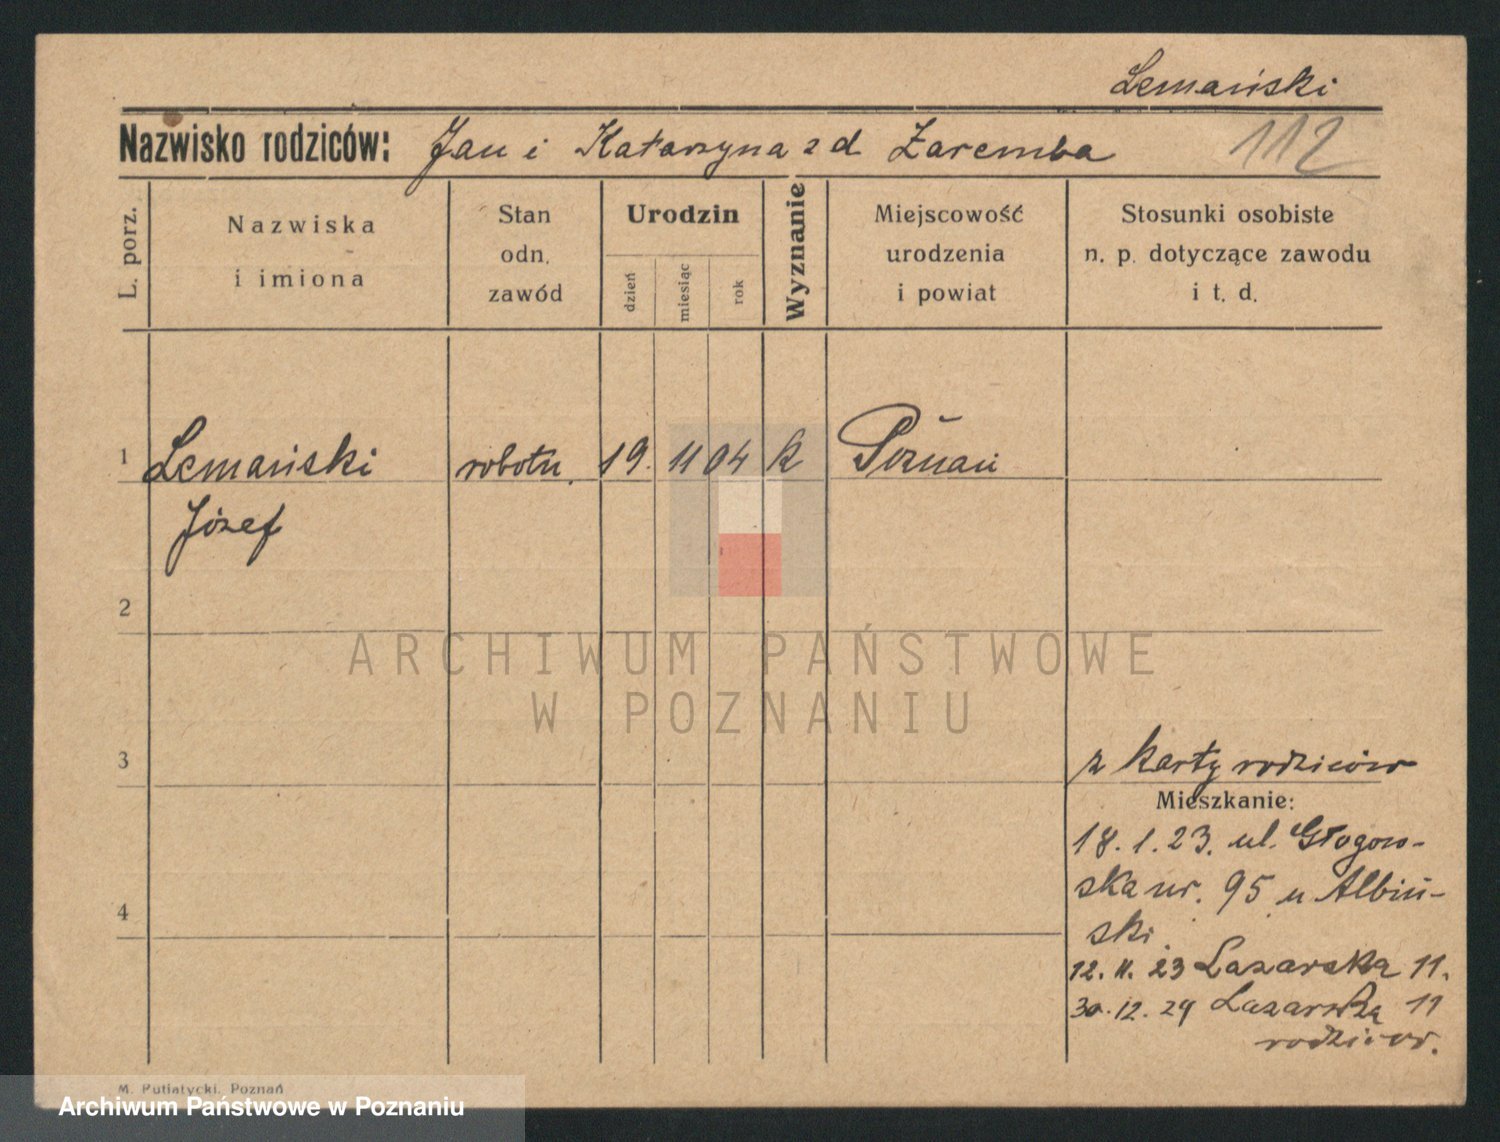 Lemański
Nazwisko rodziców: Jan i Katarzyna z d Zaremba
112
L. porz.
Nazwiska
i imiona
Stan
odn.
zawód
Urodzin
dzień
miesiąc
rok
Wyznanie
Miejscowość
urodzenia
i powiat
Stosunki osobiste
n. p. dotyczące zawodu
i t. d.
1 Lemański robotn. 19. 11 04 k Poznań
Józef
2
ARCHIWUM PAŃSTWOWE
W POZNANIU
3
z karty rodziców
Mieszkanie:
18. 1. 23. ul. Głogow-
ska nr. 95 u Albiń-
4
ski
12. 11. 23 Łazarska 11.
30. 12. 29 Łazarska 11
rodziców.
M. Putiatycki, Poznań
Archiwum Państwowe w Poznaniu